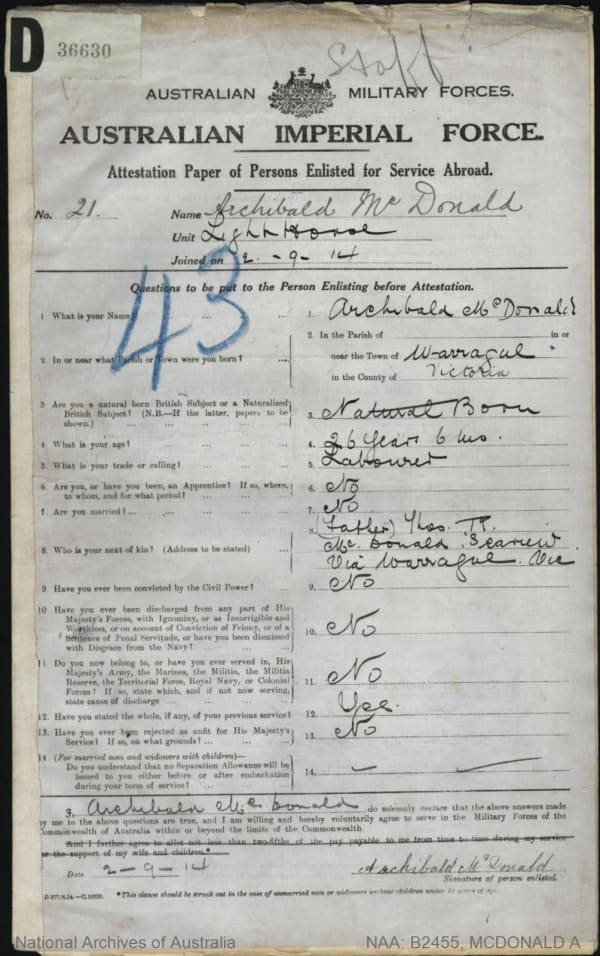 D 36630
Staff
AUSTRALIAN MILITARY FORCES.
AUSTRALIAN IMPERIAL FORCE.
Attestation Paper of Persons Enlisted for Service Abroad.
No. 21. Name Archibald Mc Donald
Unit Light Horse
Joined on 2-9-14
43
Questions to be put to the Person Enlisting before Attestation.
1 What is your Name? ... ... ... 1. Archibald McDonald
2. In or near what Parish or Town were you born? ... 2. In the Parish of in or
near the Town of Warragul
in the County of Victoria
3 Are you a natural born British Subject or a Naturalized
British Subject? (N.B.—If the latter, papers to be
shown.) ... ... 3. Natural Born
4. What is your age? ... ... ... 4. 26 Years 6 mo.
5. What is your trade or calling? ... ... 5. Labourer
6. Are you, or have you been, an Apprentice? If so, where,
to whom, and for what period? ... ... 6. No
7. Are you married?... ... ... 7. No
8. Who is your next of kin? (Address to be stated) ... 8. (Father) Thos. 
Mc Donald Seaview
Via Warragul. Vic
9 Have you ever been convicted by the Civil Power? ... 9. No
10 Have you ever been discharged from any part of His
Majesty's Forces, with Ignominy, or as Incorrigible and
Worthless, or on account of Conviction of Felony, or of a
Sentence of Penal Servitude, or have you been dismissed
with Disgrace from the Navy? ... 10. No
11 Do you now belong to, or have you ever served in, His
Majesty's Army, the Marines, the Militia, the Militia
Reserve, the Territorial Force, Royal Navy, or Colonial
Forces? If so, state which, and if not now serving,
state cause of discharge ... ... 11. No
12. Have you stated the whole, if any, of your previous service? 12. Yes.
13. Have you ever been rejected as unfit for His Majesty's
Service? If so, on what grounds? ... ... 13. No
14 (For married men and widowers with children)—
Do you understand that no Separation Allowance will be
issued to you either before or after embarkation
during your term of service? 14. —
I, Archibald Mc Donald do solemnly declare that the above answers made
by me to the above questions are true, and I am willing and hereby voluntarily agree to serve in the Military Forces of the
Commonwealth of Australia within or beyond the limits of the Commonwealth.
And I further agree to allot not less than two-fifths of the pay payable to me from time to time during my service
for the support of my wife and children.*
Date 2-9-14 Archibald McDonald
Signature of person enlisted.
*This clause should be struck out in the case of unmarried men or widowers without children under
National Archives of Australia NAA: B2455, MCDONALD A